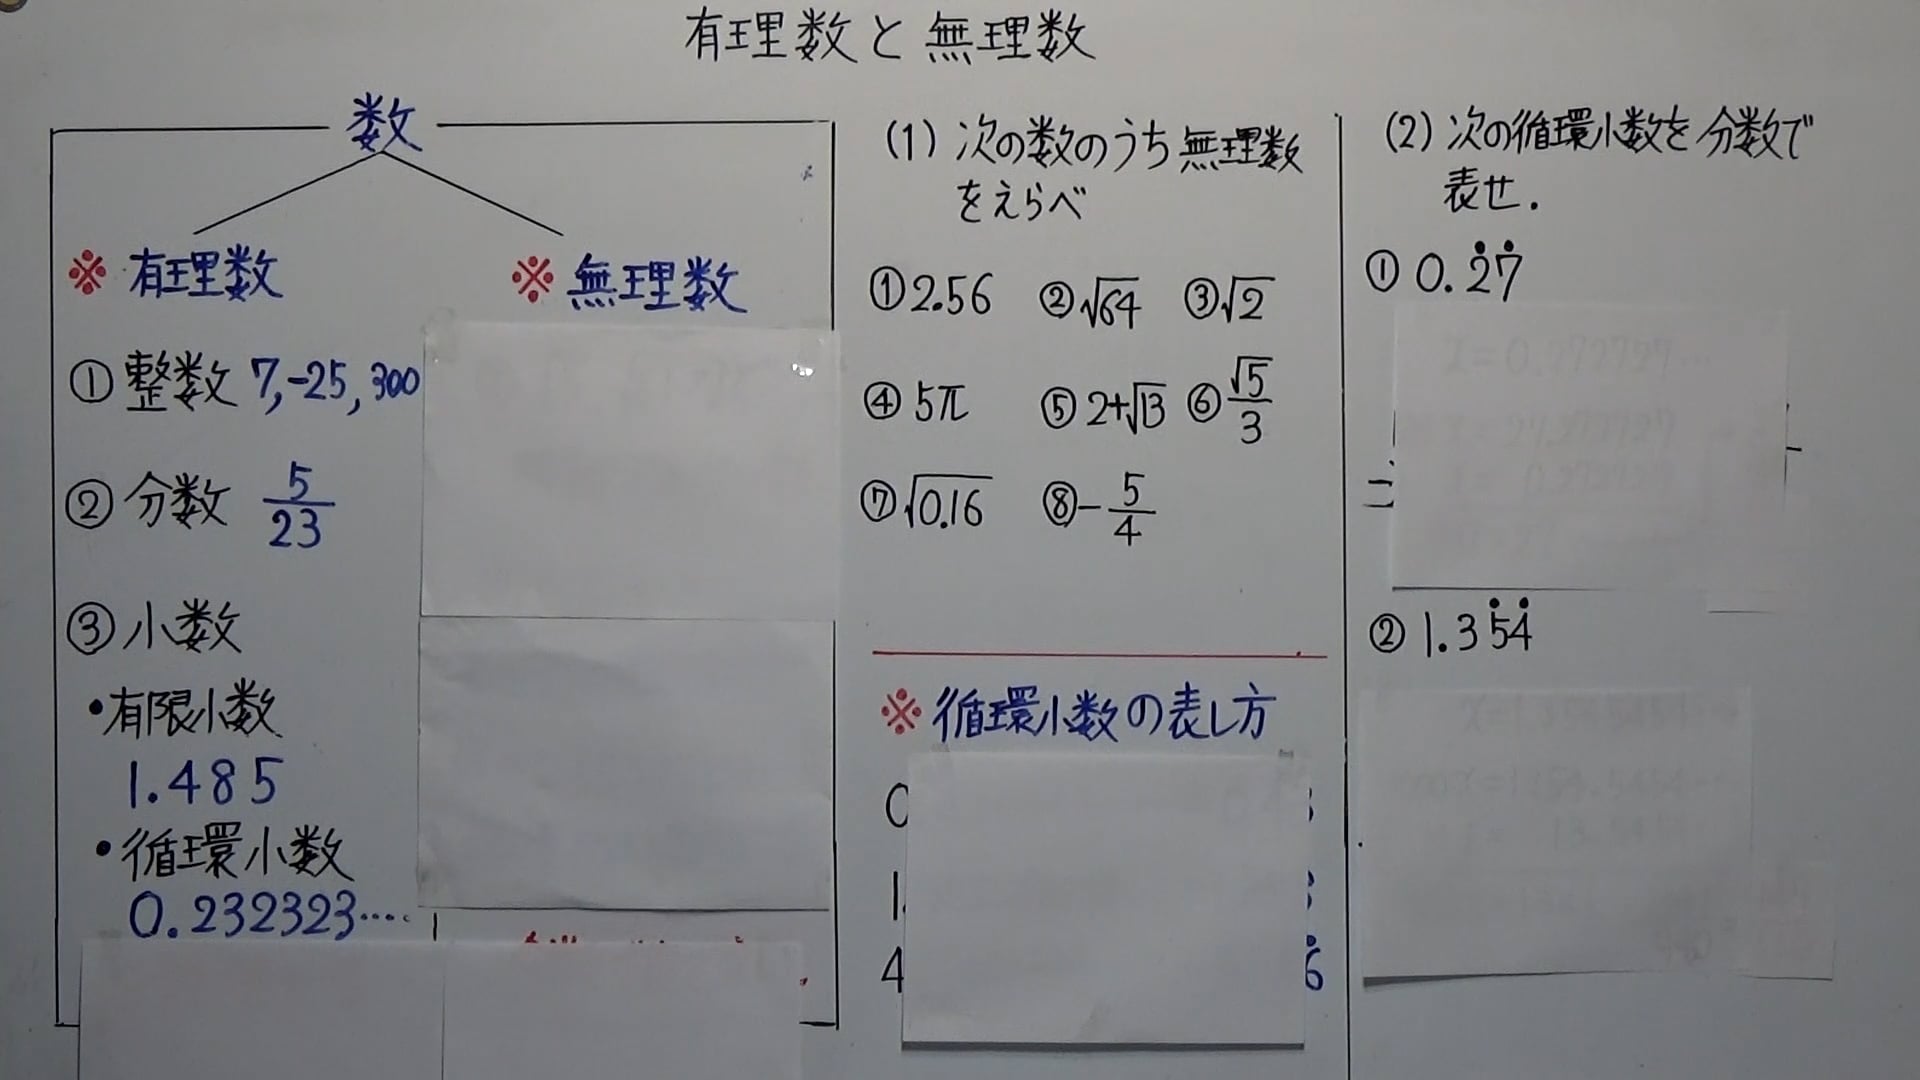 有理数と無理数
数
※ 有理数
※ 無理数
① 整数 7, -25, 300
② 分数 5/23
③ 小数
・有限小数
1.485
・循環小数
0.232323····
(1) 次の数のうち無理数
をえらべ
① 2.56 ② √64 ③ √2
④ 5π ⑤ 2+√13 ⑥ √5/3
⑦ √0.16 ⑧ -5/4
※ 循環小数の表し方
0
1.
4 6̇
(2) 次の循環小数を分数で
表せ.
① 0.2̇7̇
② 1.35̇4̇